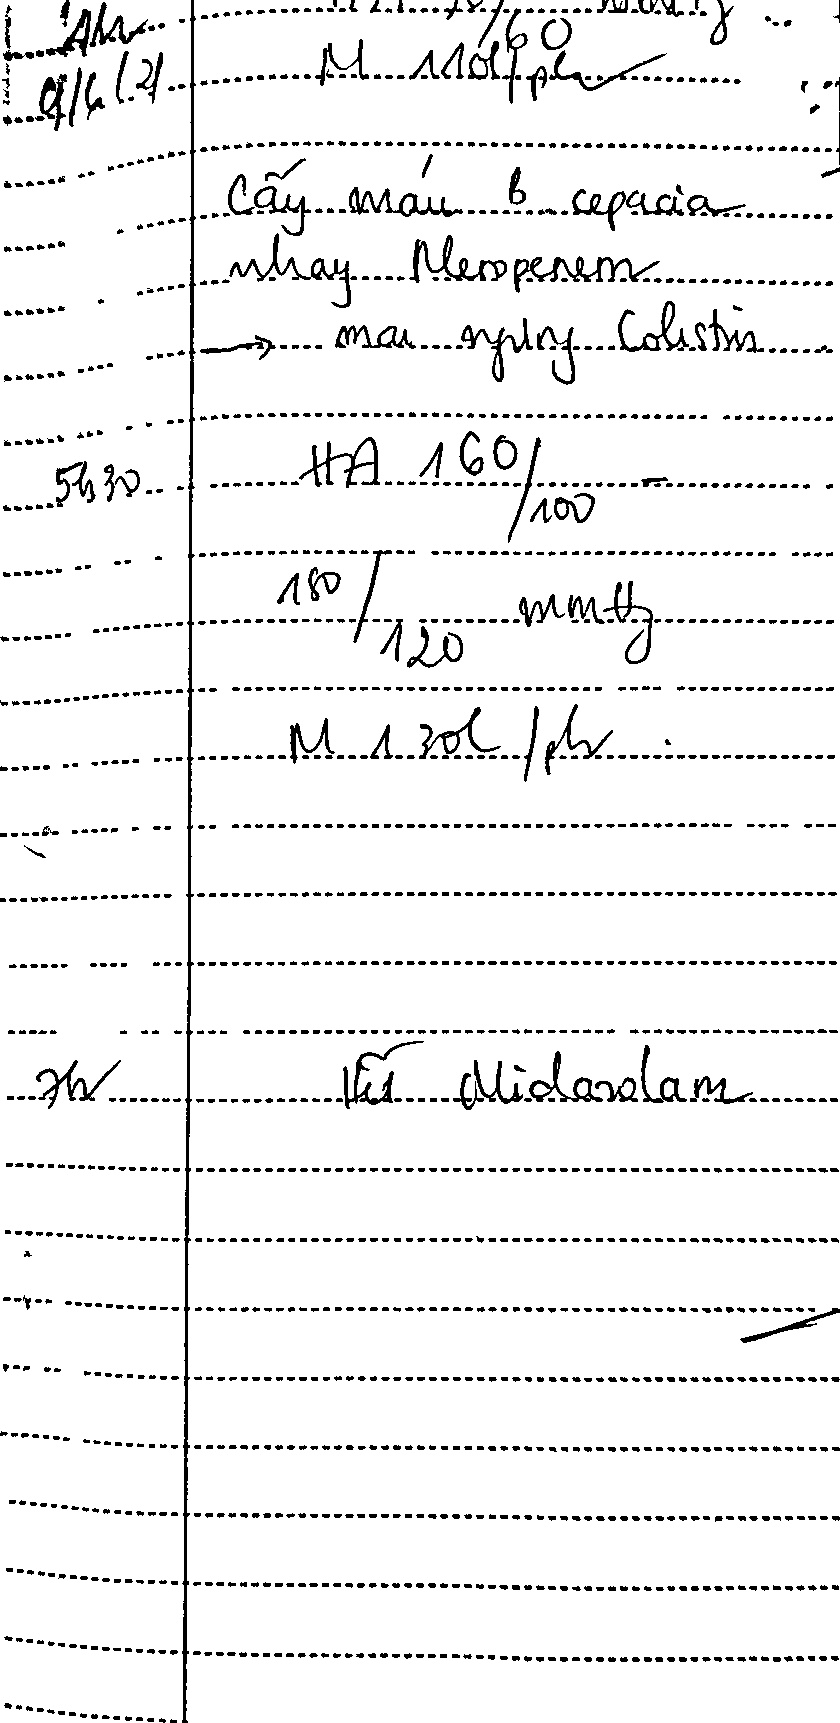 /60 mmHg
1h
M 110l/ph
9/6/21
Cấy máu B cepacia
nhạy Meropenem
→ mai ngừng Colistin
5h30 HA 160/100 -
180/120 mmHg
M 130l/ph
7h Midazolam